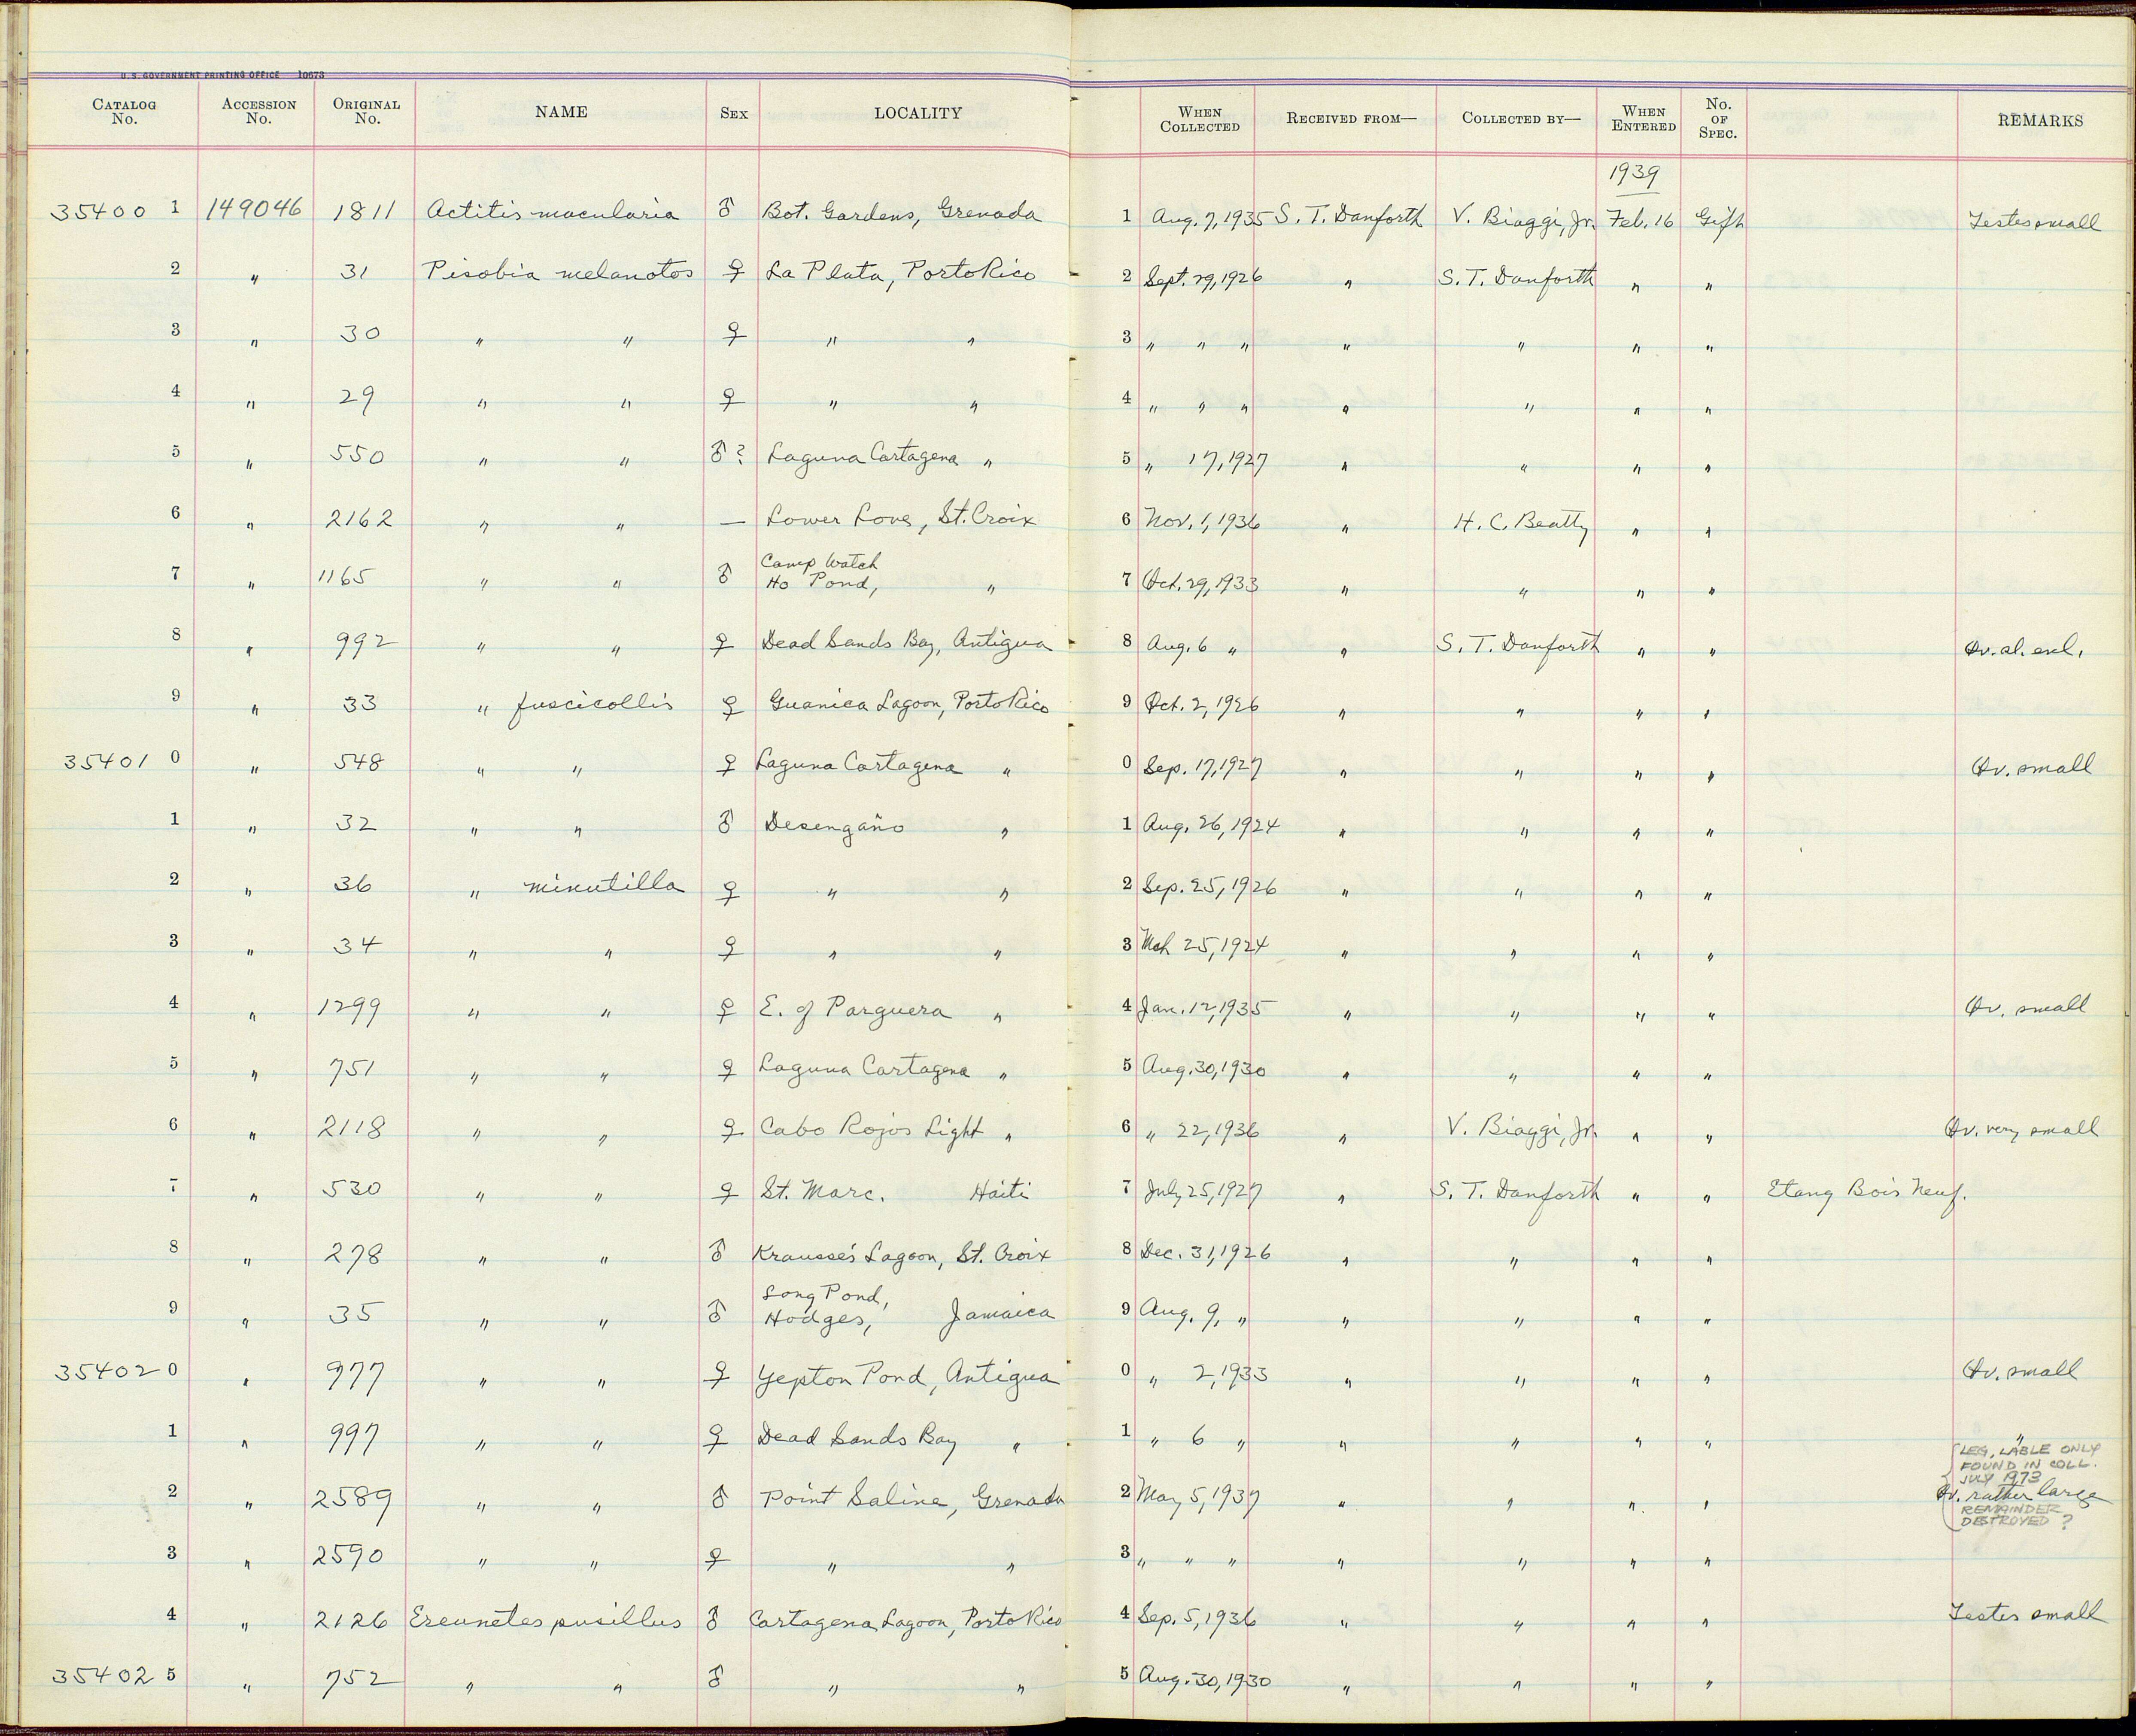 U.S. GOVERNMENT PRINTING OFFICE 10673
CATALOG No. ACCESSION No. ORIGINAL No. NAME SEX LOCALITY WHEN COLLECTED RECEIVED FROM— COLLECTED BY— WHEN ENTERED No. OF SPEC. REMARKS
1939
35400 1 149046 1811 Actitis macularia ♂ Bot. Gardens, Grenada 1 Aug. 7, 1935 S. T. Danforth V. Biaggi, Jr. Feb. 16 Gift Testes small
2 " 31 Pisobia melanotos ♀ La Plata, Porto Rico 2 Sept. 29, 1926 " S. T. Danforth " "
3 " 30 " " ♀ " " 3 " " " " " " "
4 " 29 " " ♀ " " 4 " " " " " " "
5 " 550 " " ♂? Laguna Cartagena " 5 " 17, 1927 " " " "
6 " 2162 " " — Lower Love, St. Croix 6 Nov. 1, 1936 " H. C. Beatty " "
7 " 1165 " " ♂ Camp Watch Ho Pond, " 7 Oct. 29, 1933 " " " "
8 " 992 " " ♀ Dead Sands Bay, Antigua 8 Aug. 6 " " S. T. Danforth " " Ov. sl. enl.
9 " 33 " fuscicollis ♀ Guanica Lagoon, Porto Rico 9 Oct. 2, 1926 " " " "
35401 0 " 548 " " ♀ Laguna Cartagena " 0 Sep. 17, 1927 " " " " Ov. small
1 " 32 " " ♂ Desengaño " 1 Aug. 26, 1924 " " " "
2 " 36 " minutilla ♀ " " 2 Sep. 25, 1926 " " " "
3 " 34 " " ♀ " " 3 Mch 25, 1924 " " " "
4 " 1299 " " ♀ E. of Parguera " 4 Jan. 12, 1935 " " " " Ov. small
5 " 751 " " ♀ Laguna Cartagena " 5 Aug. 30, 1930 " " " "
6 " 2118 " " ♀ Cabo Rojos Light " 6 " 22, 1936 " V. Biaggi, Jr. " " Ov. very small
7 " 530 " " ♀ St. Marc. Haiti 7 July 25, 1927 " S. T. Danforth " " Etang Bois Neuf.
8 " 278 " " ♂ Krausse's Lagoon, St. Croix 8 Dec. 31, 1926 " " " "
9 " 35 " " ♂ Long Pond, Hodges, Jamaica 9 Aug. 9, " " " " "
35402 0 " 977 " " ♀ Yepton Pond, Antigua 0 " 2, 1933 " " " " Ov. small
1 " 997 " " ♀ Dead Sands Bay " 1 " 6 " " " " " "
LEG, LABLE ONLY
FOUND IN COLL.
JULY 1973
2 " 2589 " " ♂ Point Saline, Grenada 2 May 5, 1937 " " " " Ov. rather large
REMAINDER
DESTROYED ?
3 " 2590 " " ♀ " " 3 " " " " " " "
4 " 2126 Ereunetes pusillus ♂ Cartagena Lagoon, Porto Rico 4 Sep. 5, 1936 " " " " Testes small
35402 5 " 752 " " ♂ " " 5 Aug. 30, 1930 " " " "